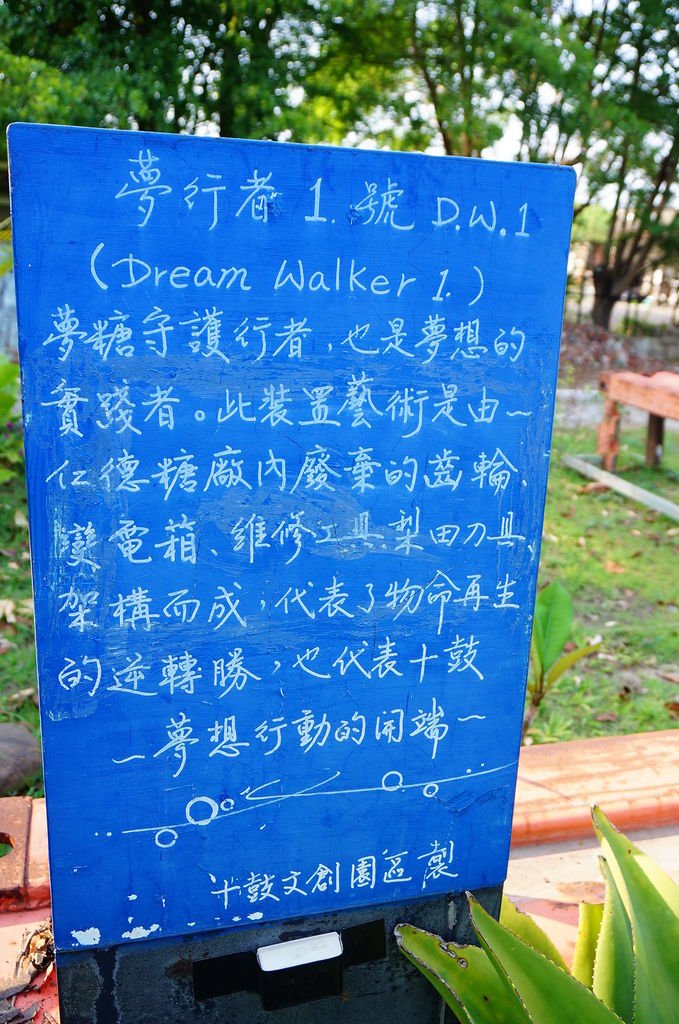 夢行者 1. 號 D.W.1
(Dream Walker 1.)
夢糖守護行者，也是夢想的
實踐者。此裝置藝術是由~
仁德糖廠內廢棄的齒輪、
變電箱、維修工具.梨田刀具、
架構而成，代表了物命再生
的逆轉勝，也代表十鼓
~夢想行動的開端~
十鼓文創園區製